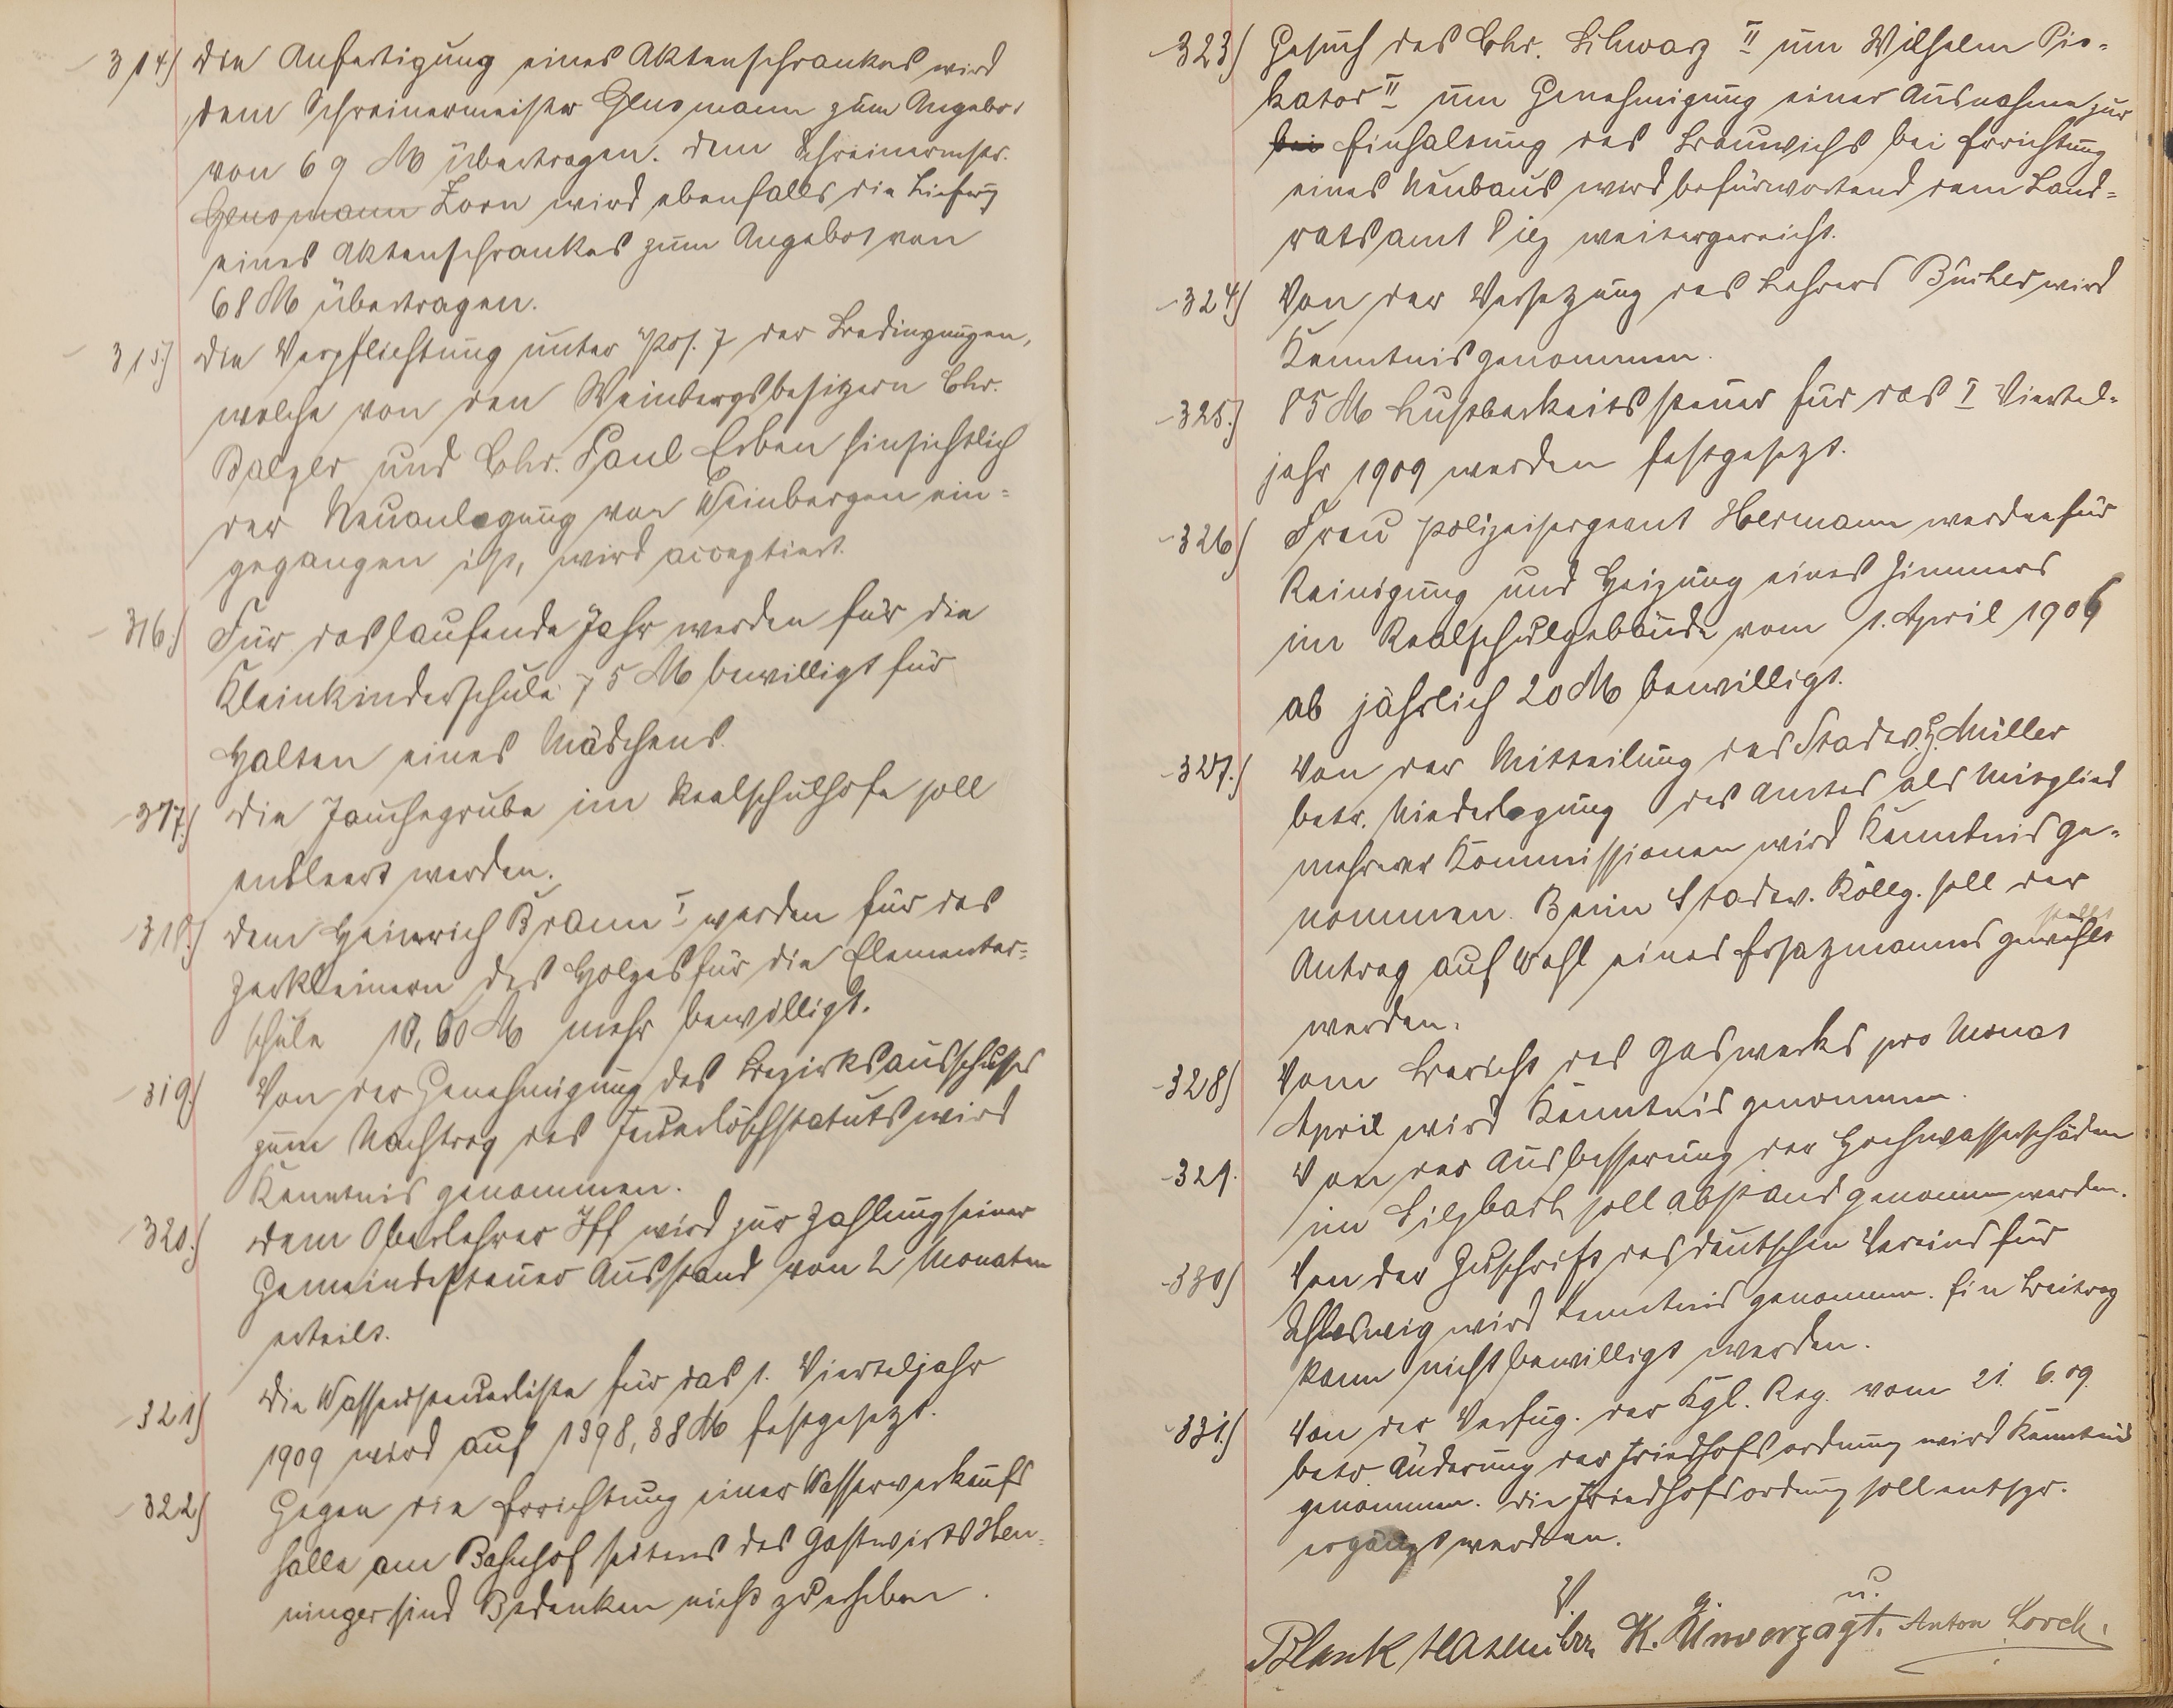 314) Die Anfertigung eines Aktenschrankes wird
dem Schreinermeister Glusmann zum Angebot
von 69 M übertragen. Dem Schreinermstr.
Glusmann Zorn wird ebenfalls die Lieferg
eines Aktenschrankes zum Angebot von
68 M übertragen.
315) Die Verpflichtung unter Pos. 7 der Bedingungen,
welche von den Weinbergsbesitzern Chr.
Balzer und Chr. Paul Erben hinsichtlich
der Neuanlegung von Weinbergen ein=
gegangen ist, wird acceptiert.
316.) Für das laufende Jahr werden für die
Kleinkinderschule 75 M bewilligt für
Halten eines Mädchens.
317.) Die Jauchegrube im Realschulhofe soll
entleert werden.
318.) Dem Heinrich Bramm I werden für das
Zerkleinern des Holzes für die Elementar=
schule 18,60 M mehr bewilligt.
319) Von der Genehmigung des Bezirksausschusses
zum Nachtrag des Feuerlöschstatuts wird
Kenntnis genommen.
320.) Dem Oberlehrer Iff wird zur Zahlung seiner
Gemeindesteuer Ausstand von 2 Monaten
erteilt.
321) Die Wassersteuerliste für das 1. Vierteljahr
1909 wird auf 1398,38 M festgesetzt.
322) Gegen die Errichtung einer Wasserverkaufs
halle am Bahnhof seitens des Gastwirts Hen=
ninger sind Bedenken nicht zu erheben.
323) Gesuch des Chr. Schwarz II um Wilhelm Pis=
kator II um Genehmigung einer Ausnahme zur
bei Einhaltung des Bauwichs bei Errichtung
eines Neubaus wird befürwortend dem Land=
ratsamt Diez weitergereicht.
324) Von der Versetzung des Lehrers Bücher wird
Kenntnis genommen.
325.) 85 M Lustbarkeitssteuer für das I Viertel=
jahr 1909 werden festgesetzt.
326) Frau Polizeisergeant Hermann werden für
Reinigung und Heizung eines Zimmers
im Realschulgebäude vom 1. April 1906
ab jährlich 20 M bewilligt.
327.) Von der Mitteilung des Stadtv. H. Müller
betr. Niederlegung des Amtes als Mitglied
mehrerer Kommissionen wird Kenntnis ge=
nommen. Beim Stadtv. Kolleg. soll der
Antrag auf Wahl eines Ersatzmannes gewählt
gestellt
werden.
328) Vom Bericht des Gaswerks pro Monat
April wird Kenntnis genommen.
329. Von der Ausbesserung der Hochwasserschäden
im Sulzbach soll Abstand genommen werden.
330) Von der Zuschrift des deutschen Vereins für
Schleswig wird Kenntnis genommen. Ein Beitrag
kann nicht bewilligt werden.
331.) Von der Verfüg. der Kgl. Reg. vom 21. 6. 09.
betr Änderung der Friedhofsordnung wird Kenntnis
genommen. Die Friedhofsordnung soll entspr.
ergänzt werden.
V. g. u.
Blank K. Unverzagt. Anton Lorch.